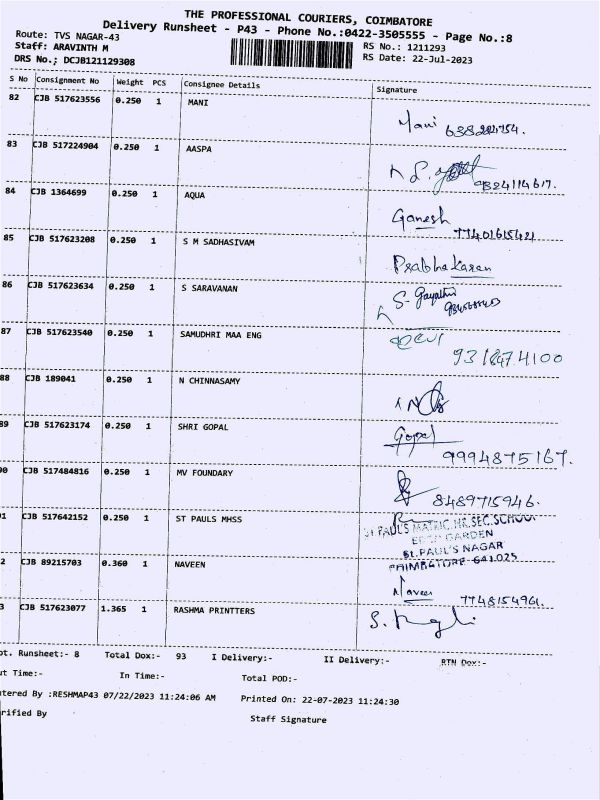 THE PROFESSIONAL COURIERS, COIMBATORE
Delivery Runsheet - P43 - Phone No.:0422-3505555 - Page No.:8
Route: TVS NAGAR-43
Staff: ARAVINTH M RS No.: 1211293
DRS No.; DCJB121129308 RS Date: 22-Jul-2023
S No Consignment No Weight PCS Consignee Details Signature
82 CJB 517623556 0.250 1 MANI
Mani
83 CJB 517224904 0.250 1 AASPA
9324114617.
84 CJB 1364699 0.250 1 AQUA
Ganesh
77401615421
85 CJB 517623208 0.250 1 S M SADHASIVAM
Prabhakaran
86 CJB 517623634 0.250 1 S SARAVANAN
S. Gayathri
87 CJB 517623540 0.250 1 SAMUDHRI MAA ENG
9318474100
88 CJB 189041 0.250 1 N CHINNASAMY
89 CJB 517623174 0.250 1 SHRI GOPAL
Gopal
9994875167.
90 CJB 517484816 0.250 1 MV FOUNDARY
8489715946.
91 CJB 517642152 0.250 1 ST PAULS MHSS
ST.PAUL'S MATRIC.HR.SEC.SCHOOL
GARDEN
ST.PAUL'S NAGAR
COIMBATORE-641025
2 CJB 89215703 0.360 1 NAVEEN
Naveen 7748154961.
3 CJB 517623077 1.365 1 RASHMA PRINTTERS
ot. Runsheet:- 8 Total Dox:- 93 I Delivery:- II Delivery:- RTN Dox:-
ut Time:- In Time:- Total POD:-
ntered By :RESHMAP43 07/22/2023 11:24:06 AM Printed On: 22-07-2023 11:24:30
rified By Staff Signature